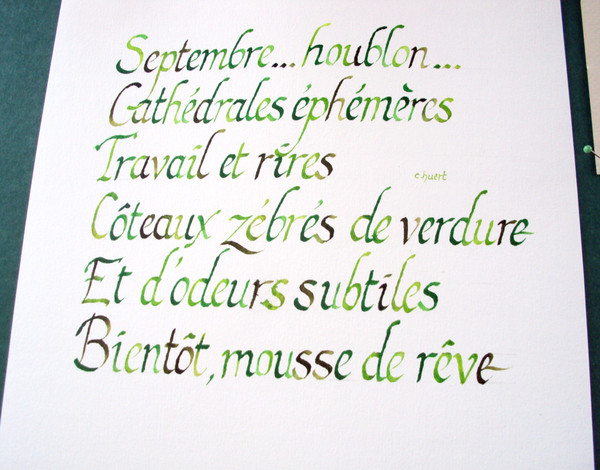 Septembre... houblon...
Cathédrales éphémères
Travail et rires
c.huert
Côteaux zébrés de verdure
Et d'odeurs subtiles
Bientôt, mousse de rêve